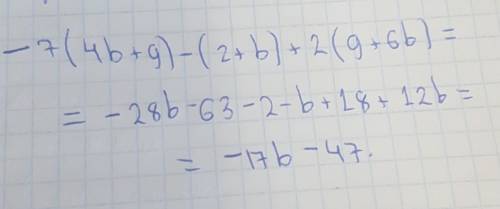 -7(4b+9)-(2+b)+2(9+6b)=
= -28b-63-2-b+18+12b=
= -17b-47.